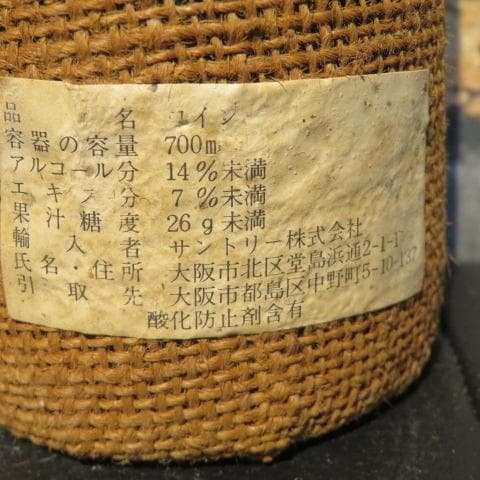 品名 ワイン
容器の容量 700m
アルコール分 14%未満
エキス分 7%未満
果汁糖度 26g未満
輸入者 サントリー株式会社
氏名・住所 大阪市北区堂島浜通2-1-1
引取先 大阪市都島区中野町5-10-137
酸化防止剤含有